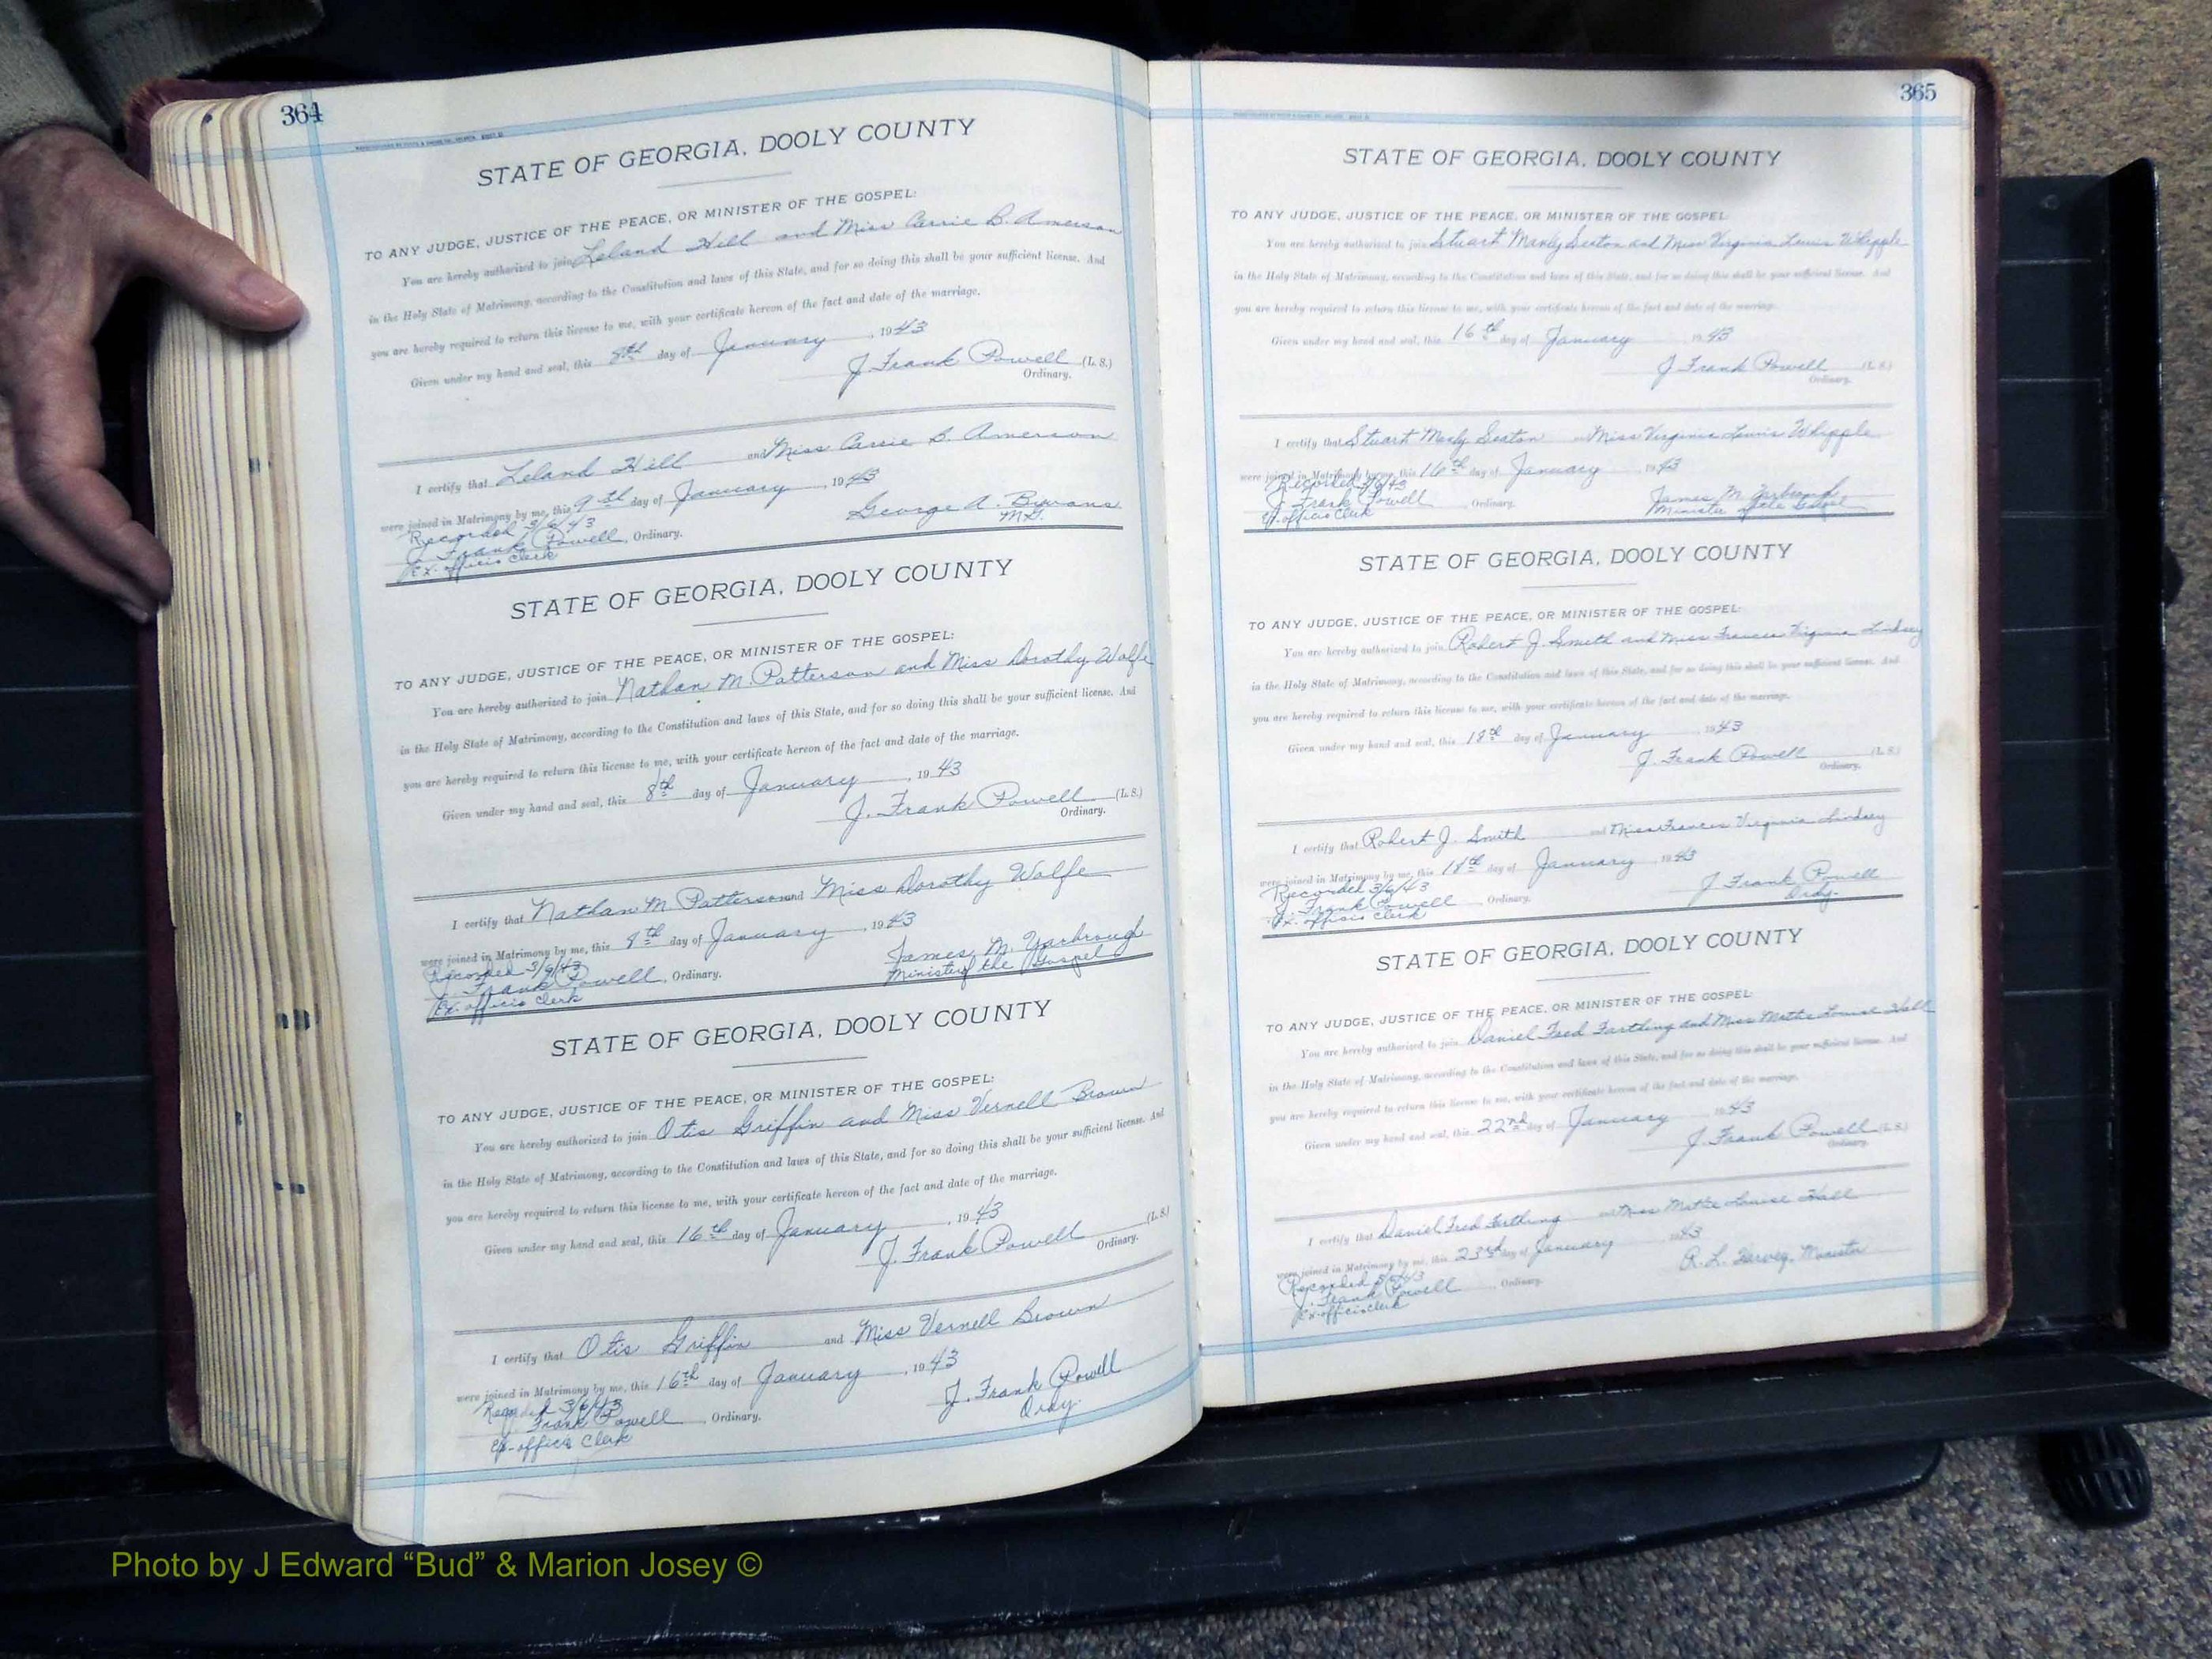 364
STATE OF GEORGIA, DOOLY COUNTY
TO ANY JUDGE, JUSTICE OF THE PEACE, OR MINISTER OF THE GOSPEL:
You are hereby authorized to join Leland Hill and Miss Carrie B. Amerson
in the Holy State of Matrimony, according to the Constitution and laws of this State, and for so doing this shall be your sufficient license. And
you are hereby required to return this license to me, with your certificate hereon of the fact and date of the marriage.
Given under my hand and seal, this 8th day of January, 1943
J Frank Powell (L. S.)
Ordinary.
I certify that Leland Hill and Miss Carrie B. Amerson
were joined in Matrimony by me, this 9th day of January, 1943
Recorded 3/6/43
George A.
M.G.
J Frank Powell, Ordinary.
Ex-officio Clerk
STATE OF GEORGIA, DOOLY COUNTY
TO ANY JUDGE, JUSTICE OF THE PEACE, OR MINISTER OF THE GOSPEL:
You are hereby authorized to join Nathan M. Patterson and Miss Dorothy Wolfe
in the Holy State of Matrimony, according to the Constitution and laws of this State, and for so doing this shall be your sufficient license. And
you are hereby required to return this license to me, with your certificate hereon of the fact and date of the marriage.
Given under my hand and seal, this 8th day of January, 1943
J. Frank Powell (L. S.)
Ordinary.
I certify that Nathan M Patterson and Miss Dorothy Wolfe
were joined in Matrimony by me, this day of January, 1943
Recorded 3/6/43
James M. Yarbrough
Minister of the Gospel
J. Frank Powell, Ordinary.
Ex-officio Clerk
STATE OF GEORGIA, DOOLY COUNTY
TO ANY JUDGE, JUSTICE OF THE PEACE, OR MINISTER OF THE GOSPEL:
You are hereby authorized to join Otis Griffin and Miss Vernell Brown
in the Holy State of Matrimony, according to the Constitution and laws of this State, and for so doing this shall be your sufficient license. And
you are hereby required to return this license to me, with your certificate hereon of the fact and date of the marriage.
Given under my hand and seal, this 16th day of January, 1943
J. Frank Powell (L. S.)
Ordinary.
I certify that Otis Griffin and Miss Vernell Brown
were joined in Matrimony by me, this 16th day of January, 1943
Recorded 3/6/43
J. Frank Powell
Ordy.
J Frank Powell, Ordinary.
Ex-officio Clerk
365
STATE OF GEORGIA, DOOLY COUNTY
TO ANY JUDGE, JUSTICE OF THE PEACE, OR MINISTER OF THE GOSPEL:
You are hereby authorized to join Stuart Manly Seaton and Miss Virginia Lewis Whipple
in the Holy State of Matrimony, according to the Constitution and laws of this State, and for so doing this shall be your sufficient license. And
you are hereby required to return this license to me, with your certificate hereon of the fact and date of the marriage.
Given under my hand and seal, this 16th day of January 1943
J Frank Powell (L. S.)
Ordinary.
I certify that Stuart Manly Seaton and Miss Virginia Lewis Whipple
were joined in Matrimony by me, this 16th day of January, 1943
Recorded 3/6/43
James M. Yarbrough
Minister of the Gospel
J Frank Powell, Ordinary.
Ex-officio Clerk
STATE OF GEORGIA, DOOLY COUNTY
TO ANY JUDGE, JUSTICE OF THE PEACE, OR MINISTER OF THE GOSPEL:
You are hereby authorized to join Robert J. Smith and Miss Frances Virginia Lindsey
in the Holy State of Matrimony, according to the Constitution and laws of this State, and for so doing this shall be your sufficient license. And
you are hereby required to return this license to me, with your certificate hereon of the fact and date of the marriage.
Given under my hand and seal, this 18th day of January, 1943
J. Frank Powell (L. S.)
Ordinary.
I certify that Robert J. Smith and Miss Frances Virginia Lindsey
were joined in Matrimony by me, this 18th day of January, 1943
Recorded 3/6/43
J Frank Powell
Ordy.
J. Frank Powell, Ordinary.
Ex-officio Clerk
STATE OF GEORGIA, DOOLY COUNTY
TO ANY JUDGE, JUSTICE OF THE PEACE, OR MINISTER OF THE GOSPEL:
You are hereby authorized to join Daniel Fred Farthing and Miss Louise Hall
in the Holy State of Matrimony, according to the Constitution and laws of this State, and for so doing this shall be your sufficient license. And
you are hereby required to return this license to me, with your certificate hereon of the fact and date of the marriage.
Given under my hand and seal, this 22nd day of January 1943
J. Frank Powell (L. S.)
Ordinary.
I certify that Daniel Fred Farthing and Miss Louise Hall
were joined in Matrimony by me, this 23rd day of January 1943
Recorded
R. L. Harvey, Minister
J. Frank Powell, Ordinary.
Ex-officio Clerk
Photo by J Edward “Bud” & Marion Josey ©